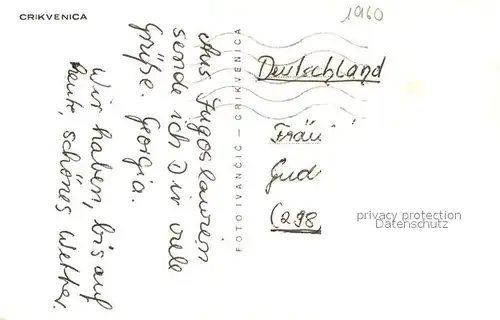 CRIKVENICA
1960
Aus Jugoslawien
sende ich Dir viele
Grüße. Georgia.
Wir haben, bis auf
heute, schönes Wetter.
FOTO IVANČIĆ – CRIKVENICA
Deutschland
Gud
(298
privacy protection
Datenschutz